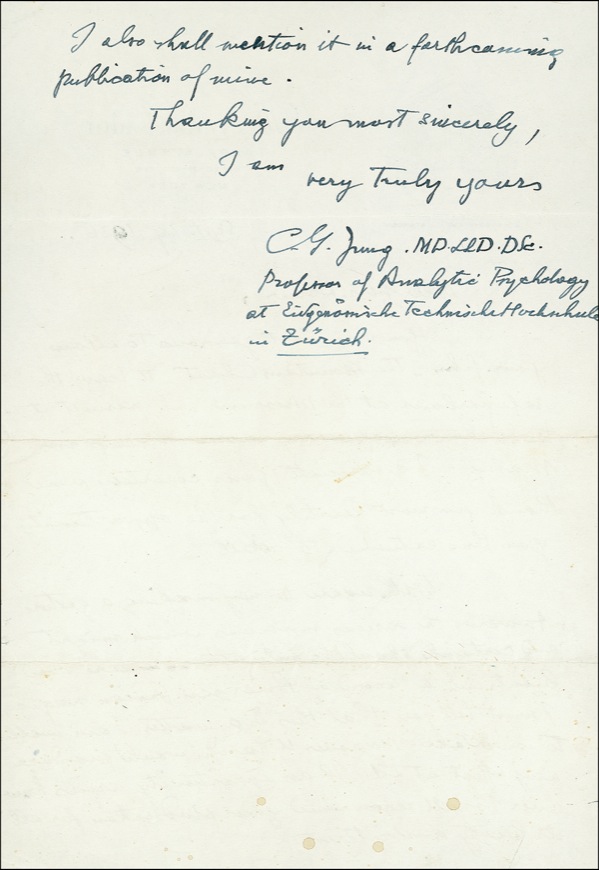 I also shall mention it in a forthcoming
publication of mine.
Thanking you most sincerely,
I am
very truly yours
C.G. Jung. MD. LLD. DSc.
Professor of Analytic Psychology
at Eidgenössische Technische Hochschule
in Zürich.